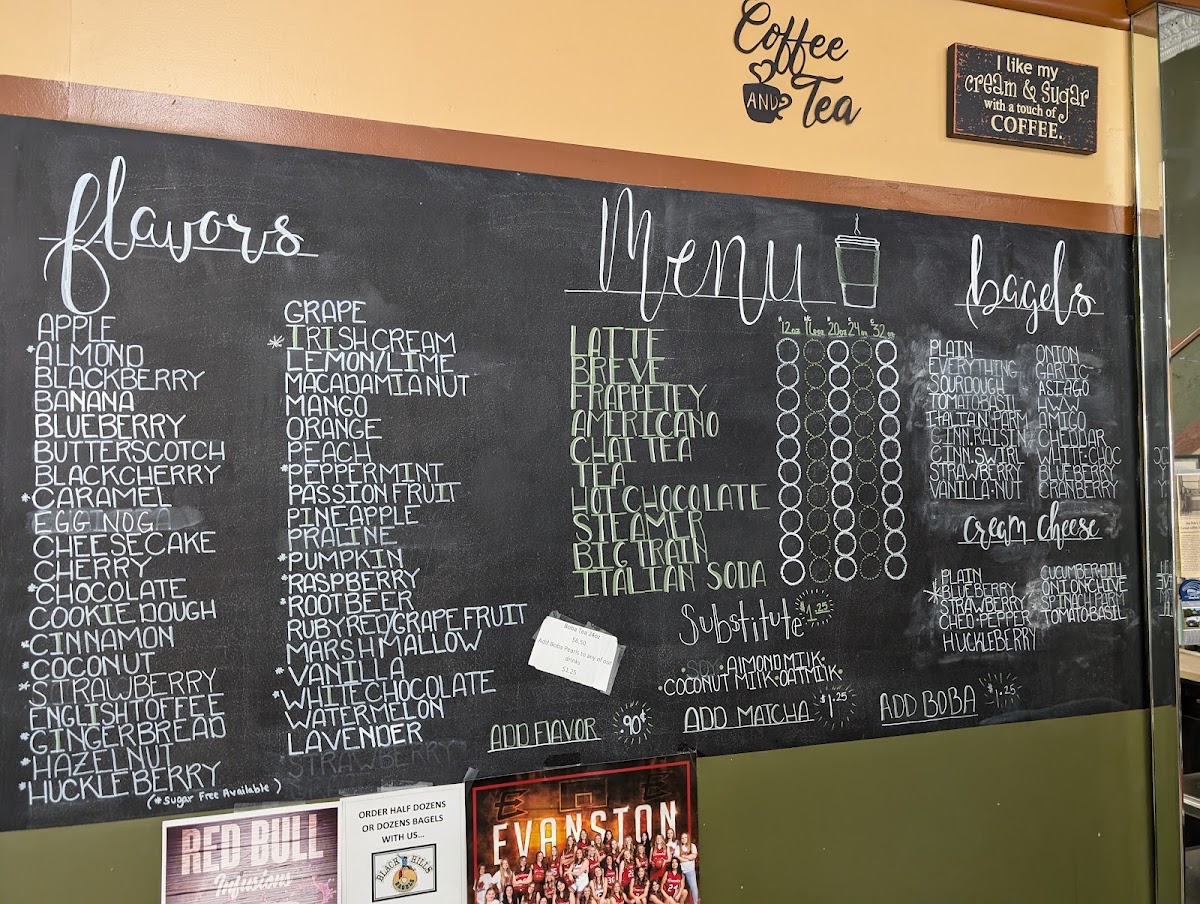 Coffee
AND
Tea
I like my
cream & sugar
with a touch of
COFFEE.
flavors
APPLE
*ALMOND
BLACKBERRY
BANANA
BLUEBERRY
BUTTERSCOTCH
BLACKCHERRY
*CARAMEL
EGGNOG
CHEESECAKE
CHERRY
*CHOCOLATE
COOKIE DOUGH
*CINNAMON
*COCONUT
*STRAWBERRY
ENGLISH TOFFEE
*GINGERBREAD
*HAZELNUT
*HUCKLEBERRY
(*Sugar Free Available)
GRAPE
*IRISH CREAM
LEMON/LIME
MACADAMIA NUT
MANGO
ORANGE
PEACH
*PEPPERMINT
PASSION FRUIT
PINEAPPLE
PRALINE
*PUMPKIN
*RASPBERRY
*ROOTBEER
RUBYRED/GRAPEFRUIT
MARSHMALLOW
*VANILLA
*WHITE CHOCOLATE
WATERMELON
LAVENDER
STRAWBERRY
Menu
12oz 16oz 20oz 24oz 32oz
LATTE
BREVE
FRAPPETEY
AMERICANO
CHAI TEA
TEA
HOT CHOCOLATE
STEAMER
BIG TRAIN
ITALIAN SODA
Substitute $1.25
SOY •ALMOND MILK•
•COCONUT MILK•OATMILK•
Boba Tea 24oz
$6.50
Add Boba Pearls to any of our
drinks
$1.25
ADD FLAVOR .90¢
ADD MATCHA $1.25
ADD BOBA $1.25
bagels
PLAIN
EVERYTHING
SOURDOUGH
TOMATO BASIL
ITALIAN PARM
CINN.RAISIN
CINN.SWIRL
STRAWBERRY
VANILLA-NUT
ONION
GARLIC
ASIAGO
HWW
AMIGO
CHEDDAR
WHITE CHOC
BLUEBERRY
CRANBERRY
cream cheese
PLAIN
*BLUEBERRY
STRAWBERRY
CHED-PEPPER
HUCKLEBERRY
CUCUMBER-DILL
ONION CHIVE
TOMATO BASIL
RED BULL
Infusions
ORDER HALF DOZENS
OR DOZENS BAGELS
WITH US...
BLACK HILLS
BAGELS
EVANSTON